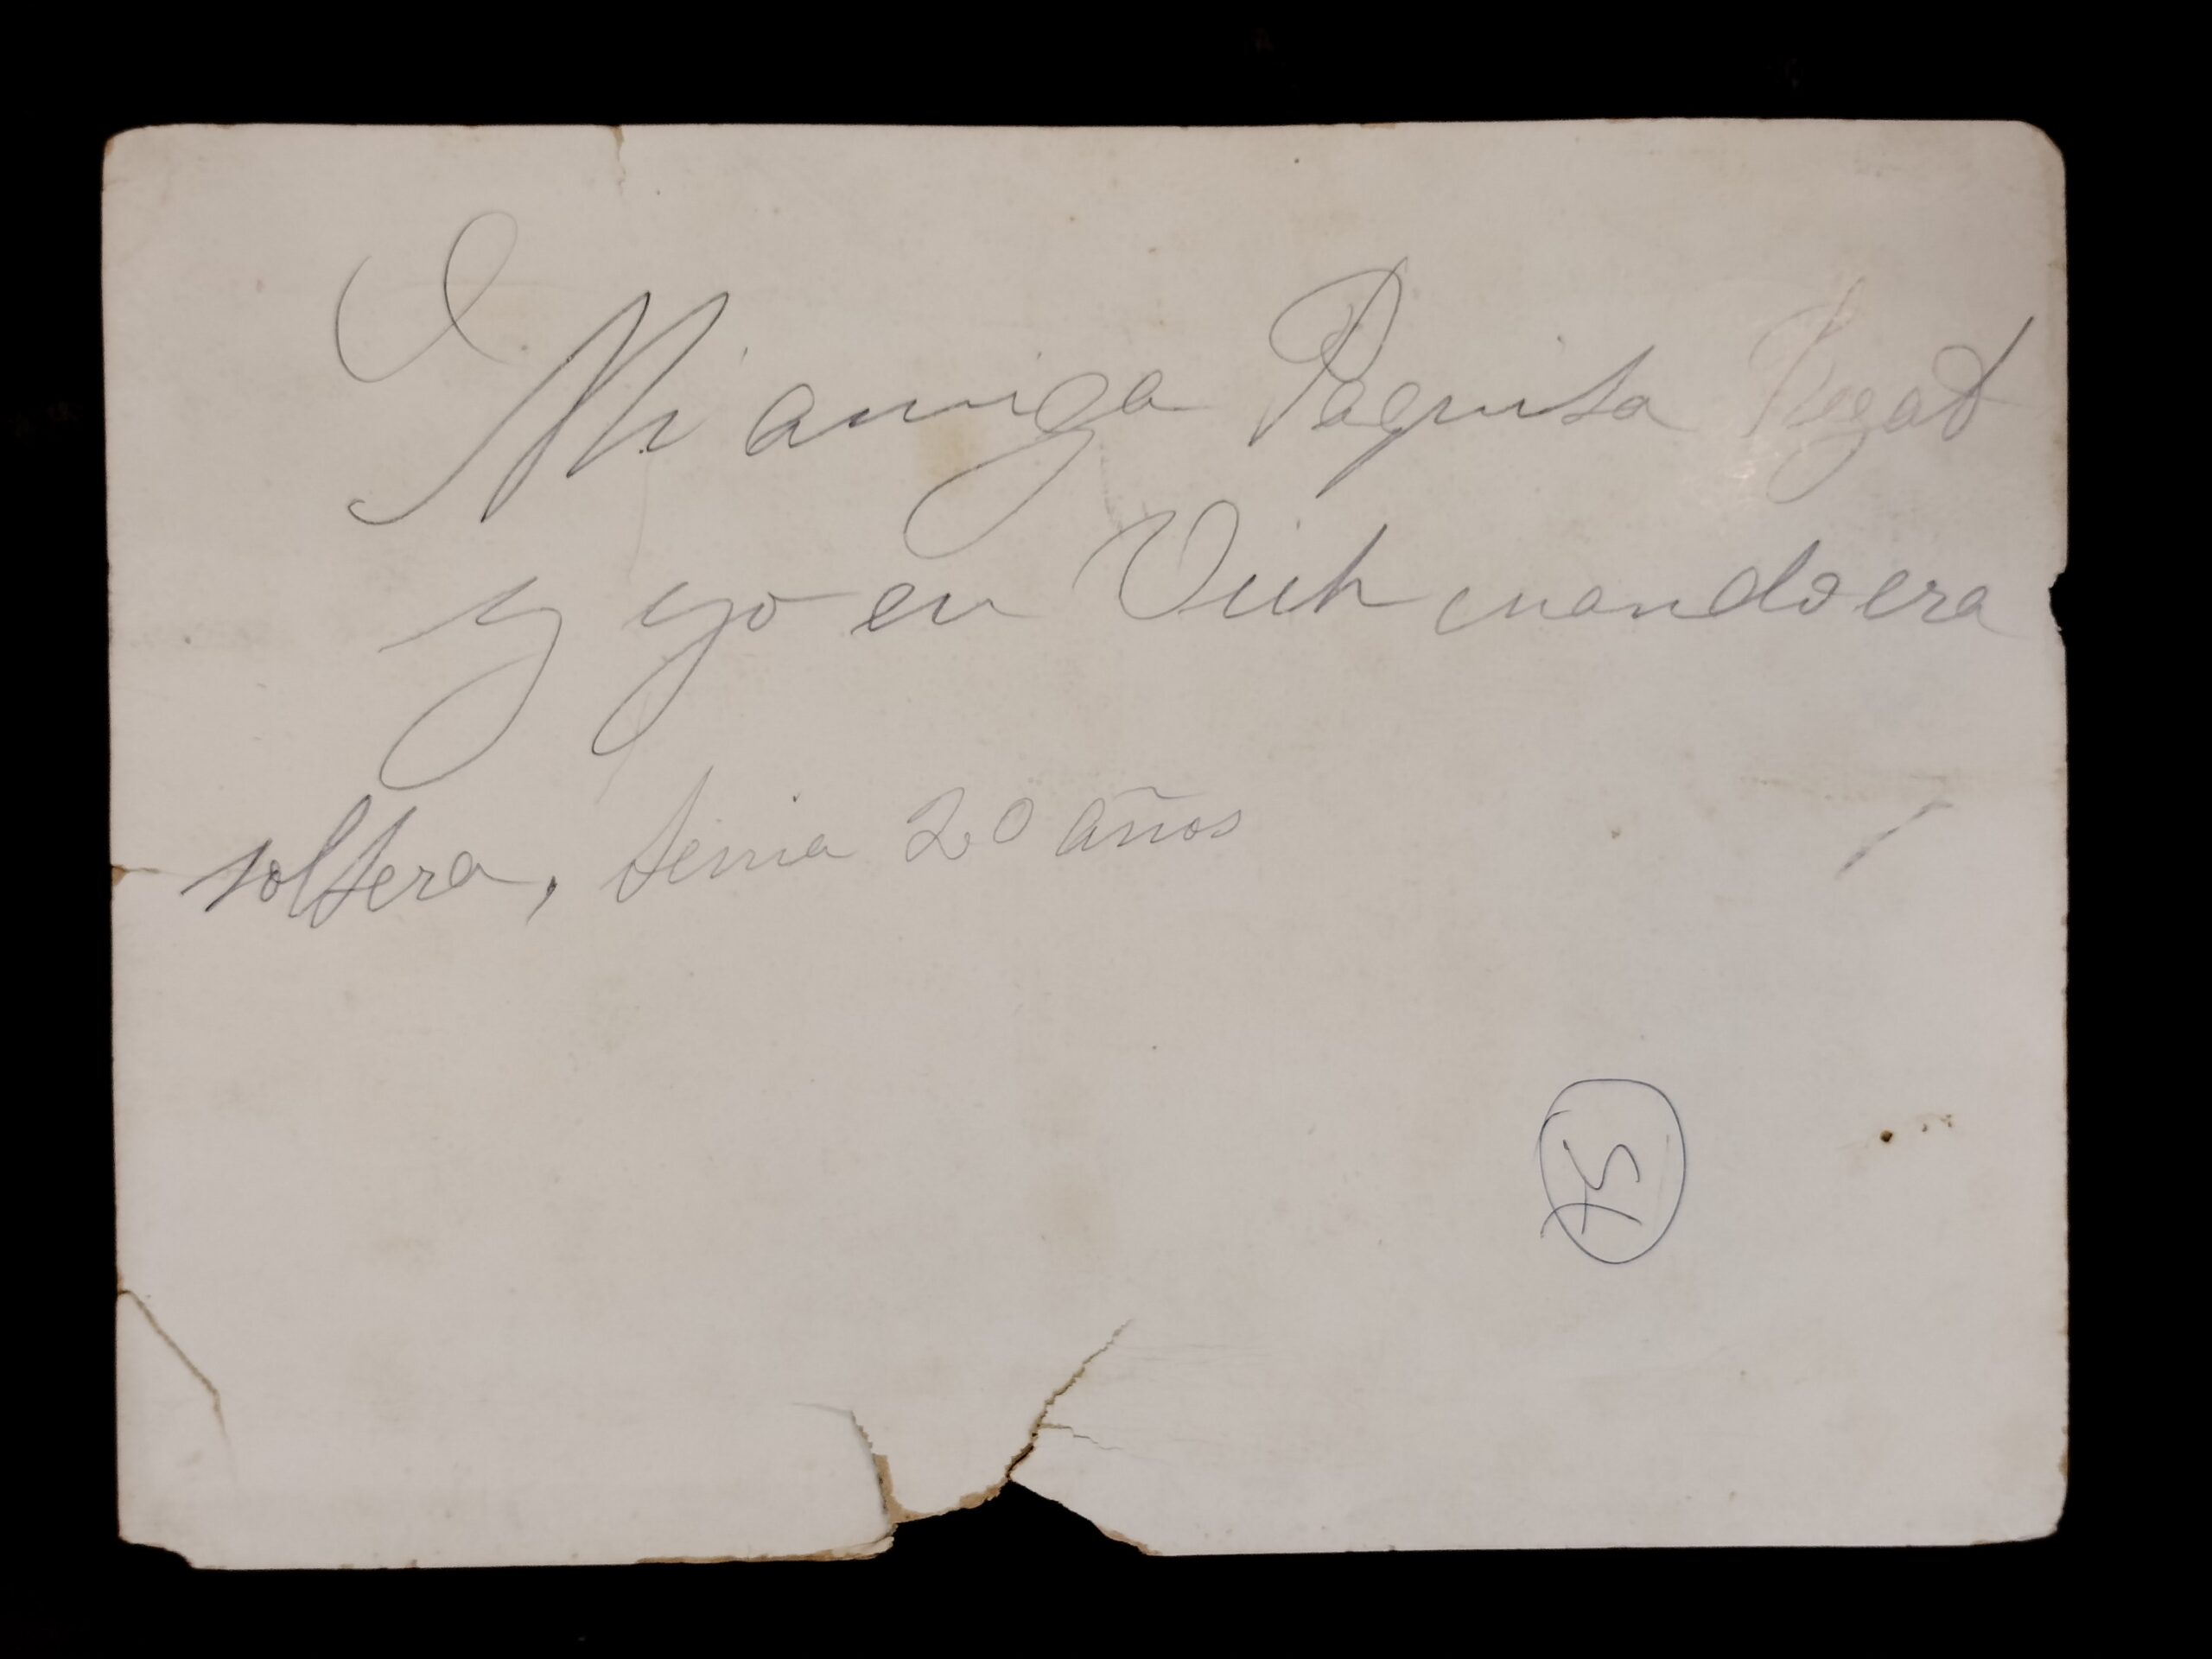 Mi amiga Paquita
y yo en Vich cuando era
soltera, tenia 20 años
75